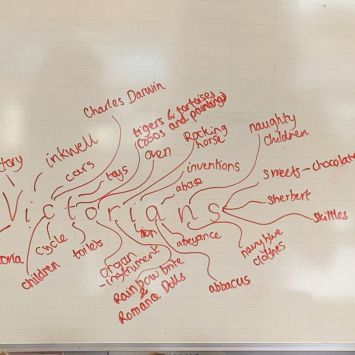 Charles Darwin
tigers & tortoises
(zoos and paintings)
naughty
children
Rocking
horse
tory
inkwell
cars
toys
oven
inventions
abase
sweets - chocolate
sherbert
skittles
Victorians
oria
cycle
toilets
children
organ
- instrument
iron
abeyance
navy blue
clothes
Rainbow brite
&
Romana Dolls
abbacus